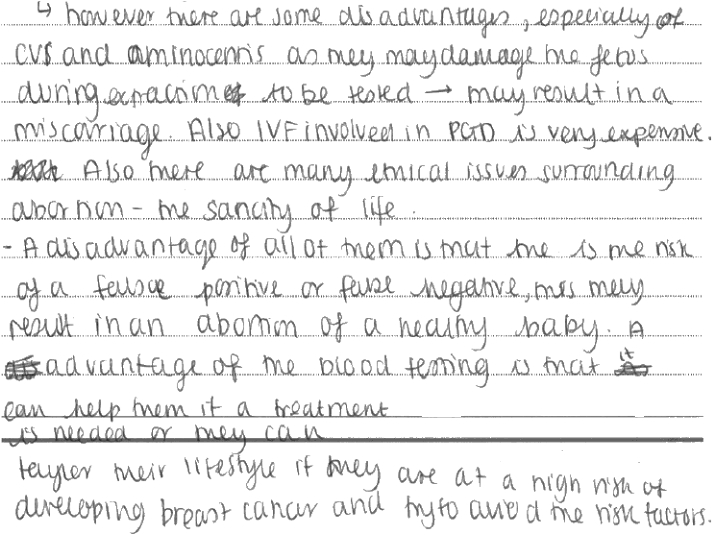 ↳ however there are some disadvantages, especially of
CVS and aminocentis as they may damage the fetus
during extraction to be tested → may result in a
miscarriage. Also IVF involved in PGD is very expensive.
Also there are many ethical issues surrounding
abortion - the sancity of life.
- A disadvantage of all of them is that the is the risk
of a false positive or false negative, this mey
result in an abortion of a healthy baby. A
advantage of the blood testing is that it
can help them if a treatment
is needed or they can
tayler their lifestyle if they are at a high risk of
developing breast cancer and try to avoid the risk factors.